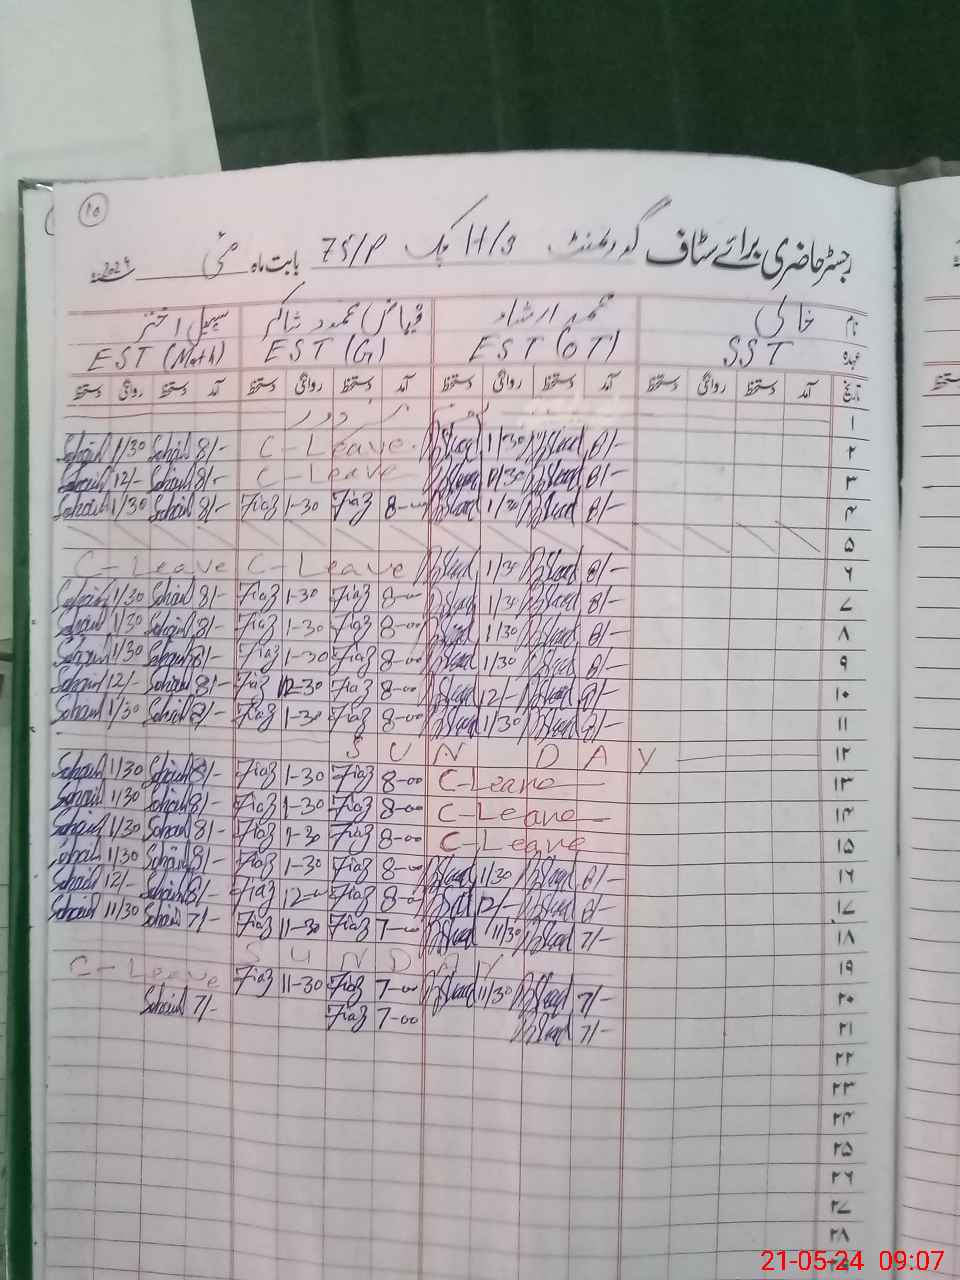 ۱۵
رجسٹر حاضری برائے سٹاف گورنمنٹ H/S چک 75/P بابت ماہ مئی 2024ء
نام خالی محمد ارشاد فیاض محمود شاکر سہیل اختر
عہدہ SST EST (OT) EST (G) EST (Math)
تاریخ آمد دستخط روانگی دستخط آمد دستخط روانگی دستخط آمد دستخط روانگی دستخط آمد دستخط روانگی دستخط
۱
Sohail 1/30 Sohail 8/- C-Leave 1/30 8/- ۲
Sohail 12/- Sohail 8/- C-Leave 8/- ۳
Sohail 1/30 Sohail 8/- Fiaz 1-30 Fiaz 8-00 1/30 8/- ۴
۵
C-Leave C-Leave 1/30 8/- ۶
Sohail 1/30 Sohail 8/- Fiaz 1-30 Fiaz 8-00 1/30 8/- ۷
Sohail 1/30 Sohail 8/- Fiaz 1-30 Fiaz 8-00 1/30 8/- ۸
Sohail 1/30 Sohail 8/- Fiaz 1-30 Fiaz 8-00 1/30 8/- ۹
Sohail 12/- Sohail 8/- Fiaz 12-30 Fiaz 8-00 12/- 8/- ۱۰
Sohail 1/30 Sohail 8/- Fiaz 1-30 Fiaz 8-00 1/30 8/- ۱۱
SUNDAY ۱۲
Sohail 1/30 Sohail 8/- Fiaz 1-30 Fiaz 8-00 C-Leave ۱۳
Sohail 1/30 Sohail 8/- Fiaz 1-30 Fiaz 8-00 C-Leave ۱۴
Sohail 1/30 Sohail 8/- Fiaz 1-30 Fiaz 8-00 C-Leave ۱۵
Sohail 1/30 Sohail 8/- Fiaz 1-30 Fiaz 8-00 1/30 8/- ۱۶
Sohail 12/- Sohail 8/- Fiaz 12-00 Fiaz 8-00 12/- 8/- ۱۷
Sohail 11/30 Sohail 7/- Fiaz 11-30 Fiaz 7-00 11/30 7/- ۱۸
SUNDAY ۱۹
C-Leave Fiaz 11-30 Fiaz 7-00 11/30 7/- ۲۰
Sohail 7/- Fiaz 7-00 7/- ۲۱
۲۲
۲۳
۲۴
۲۵
۲۶
۲۷
۲۸
21-05-24 09:07